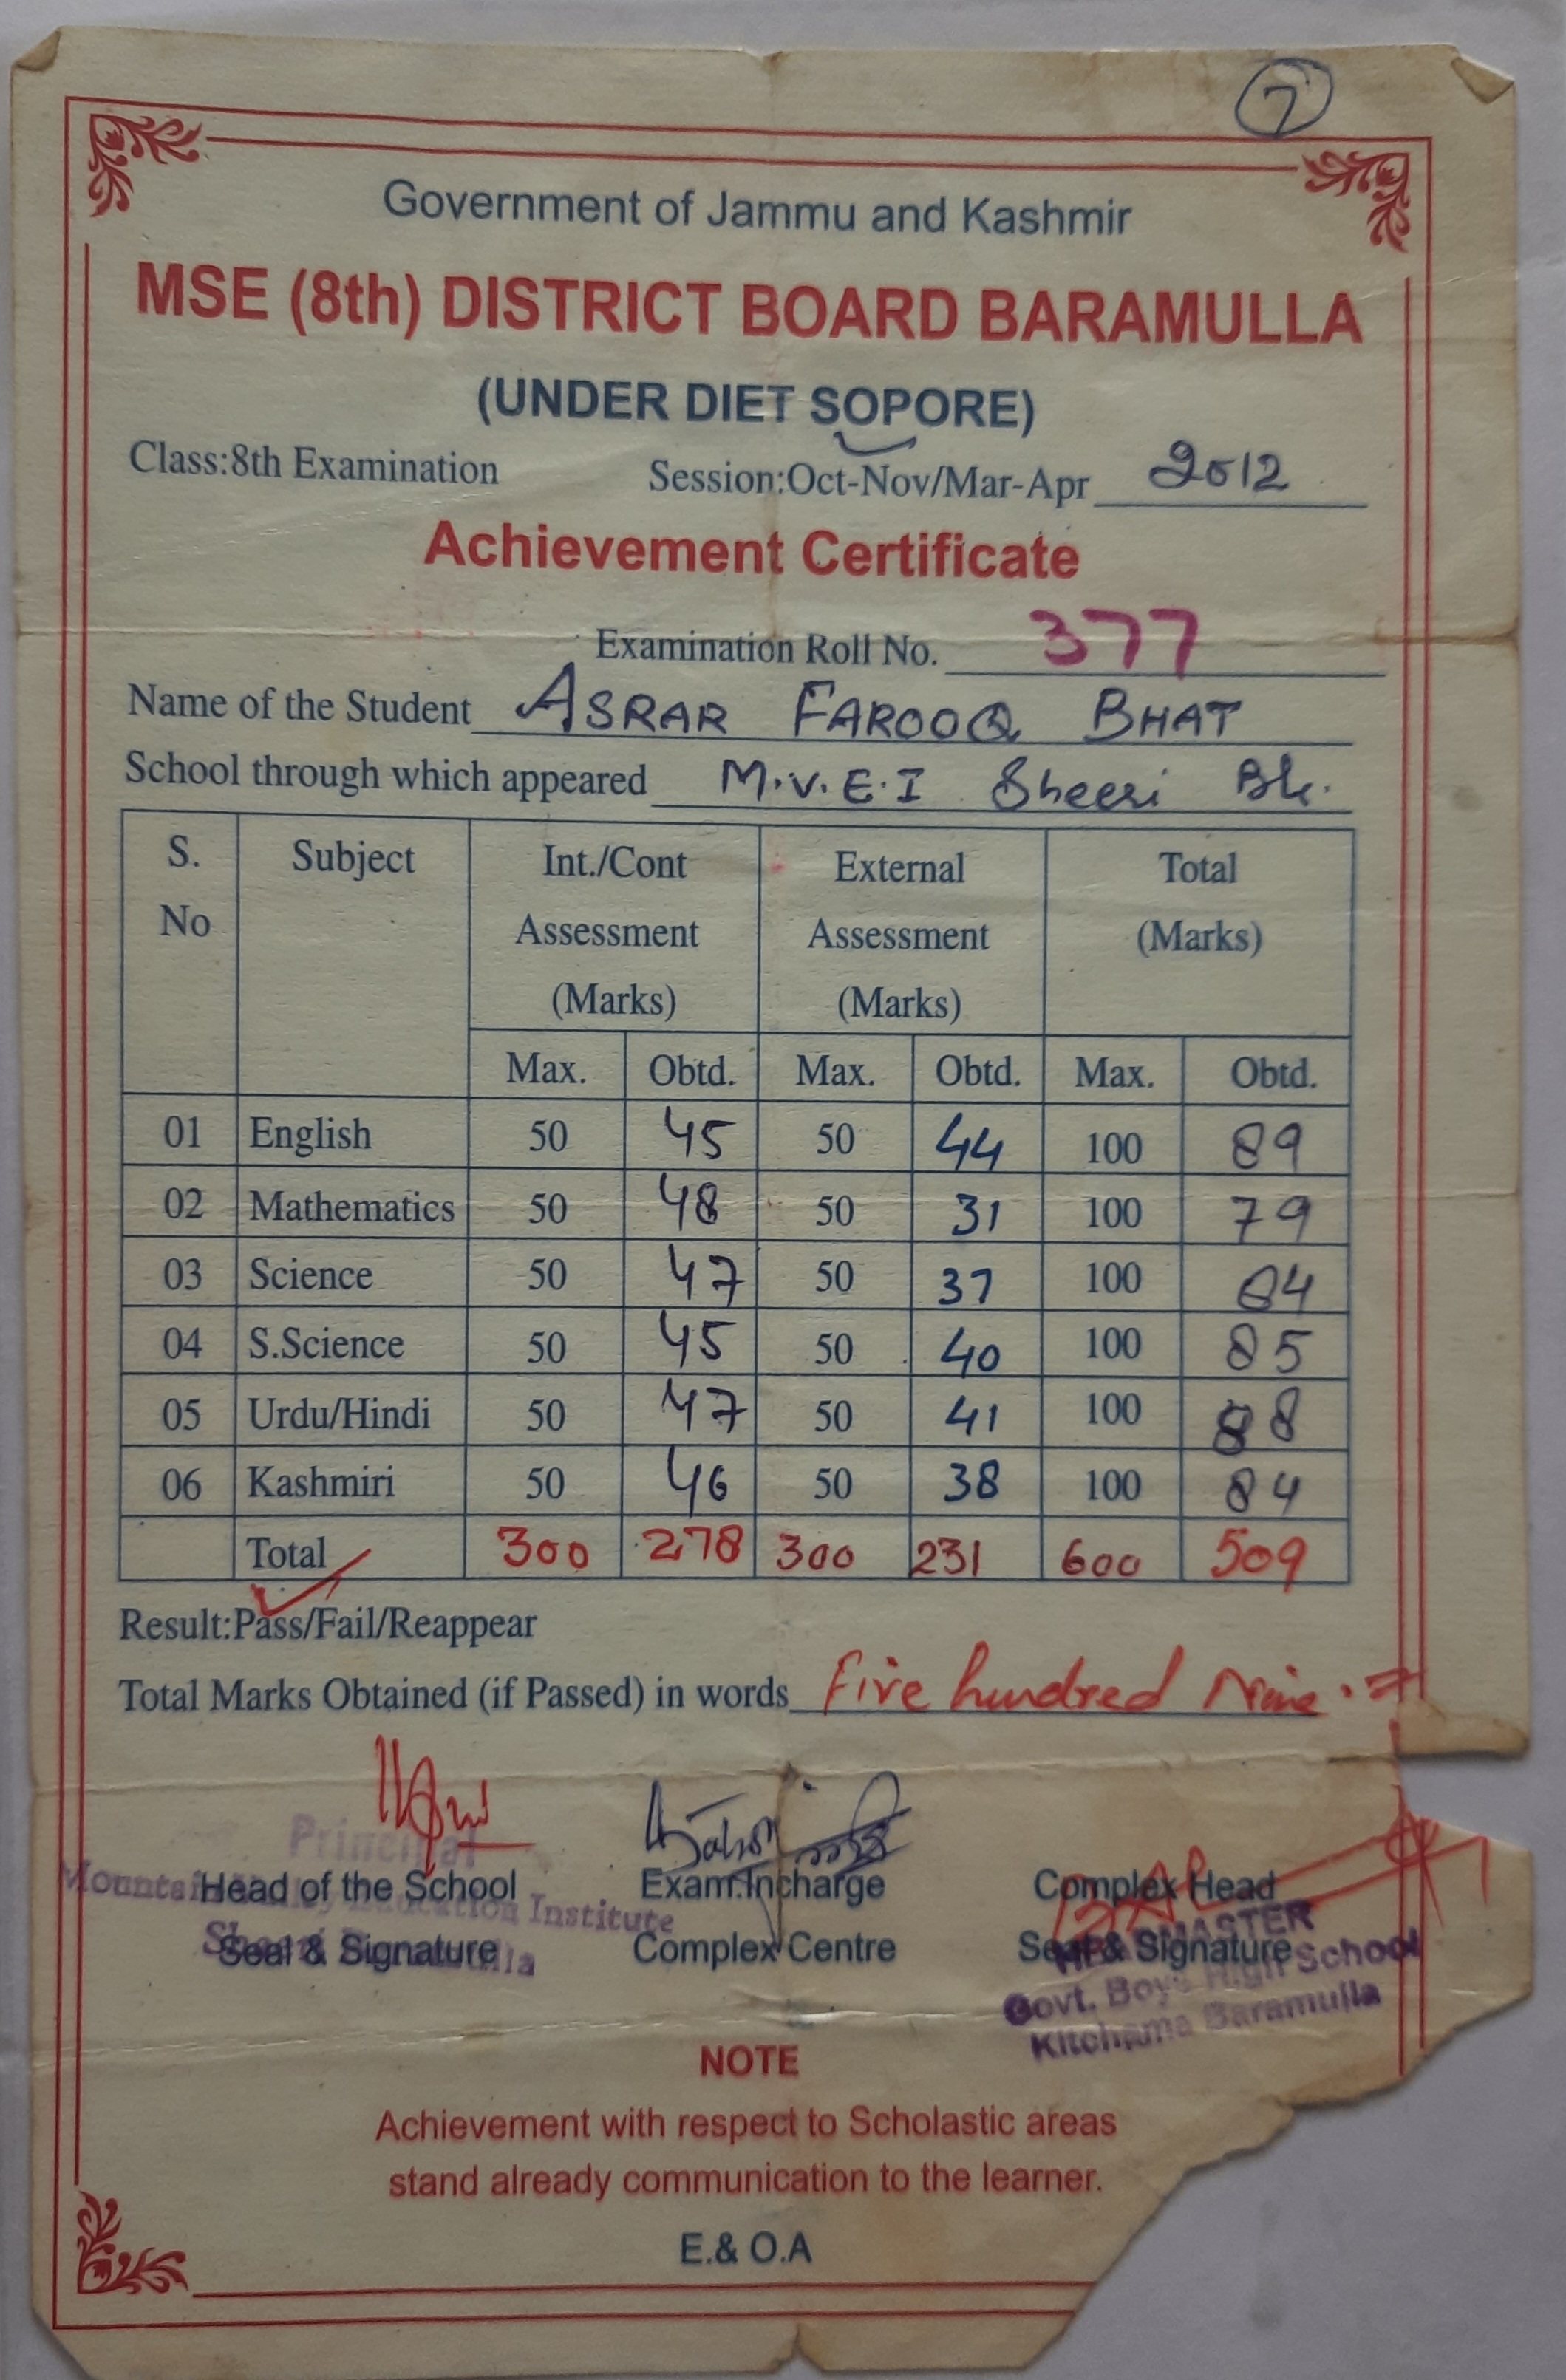 7
Government of Jammu and Kashmir
MSE (8th) DISTRICT BOARD BARAMULLA
(UNDER DIET SOPORE)
Class:8th Examination Session:Oct-Nov/Mar-Apr 2012
Achievement Certificate
Examination Roll No. 377
Name of the Student ASRAR FAROOQ BHAT
School through which appeared M.V.E.I Sheeri Bla.
S. No Subject Int./Cont Assessment (Marks) External Assessment (Marks) Total (Marks)
Max. Obtd. Max. Obtd. Max. Obtd.
01 English 50 45 50 44 100 89
02 Mathematics 50 48 50 31 100 79
03 Science 50 47 50 37 100 84
04 S.Science 50 45 50 40 100 85
05 Urdu/Hindi 50 47 50 41 100 88
06 Kashmiri 50 46 50 38 100 84
Total 300 278 300 231 600 509
Result:Pass/Fail/Reappear
Total Marks Obtained (if Passed) in words Five hundred Nine.=
Principal
Mountain Valley Education Institute
Sheeri Baramulla
Head of the School Exam.Incharge Complex Head
Seal & Signature Complex Centre Seal & Signature
HEADMASTER
Govt. Boys High School
Kitchama Baramulla
NOTE
Achievement with respect to Scholastic areas
stand already communication to the learner.
E.& O.A